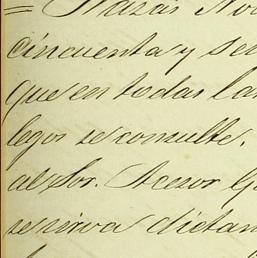 = Plazas No
cincuenta y se
que en todas las
legos se consulte.
al Sor. Asesor G
se sirva dictam